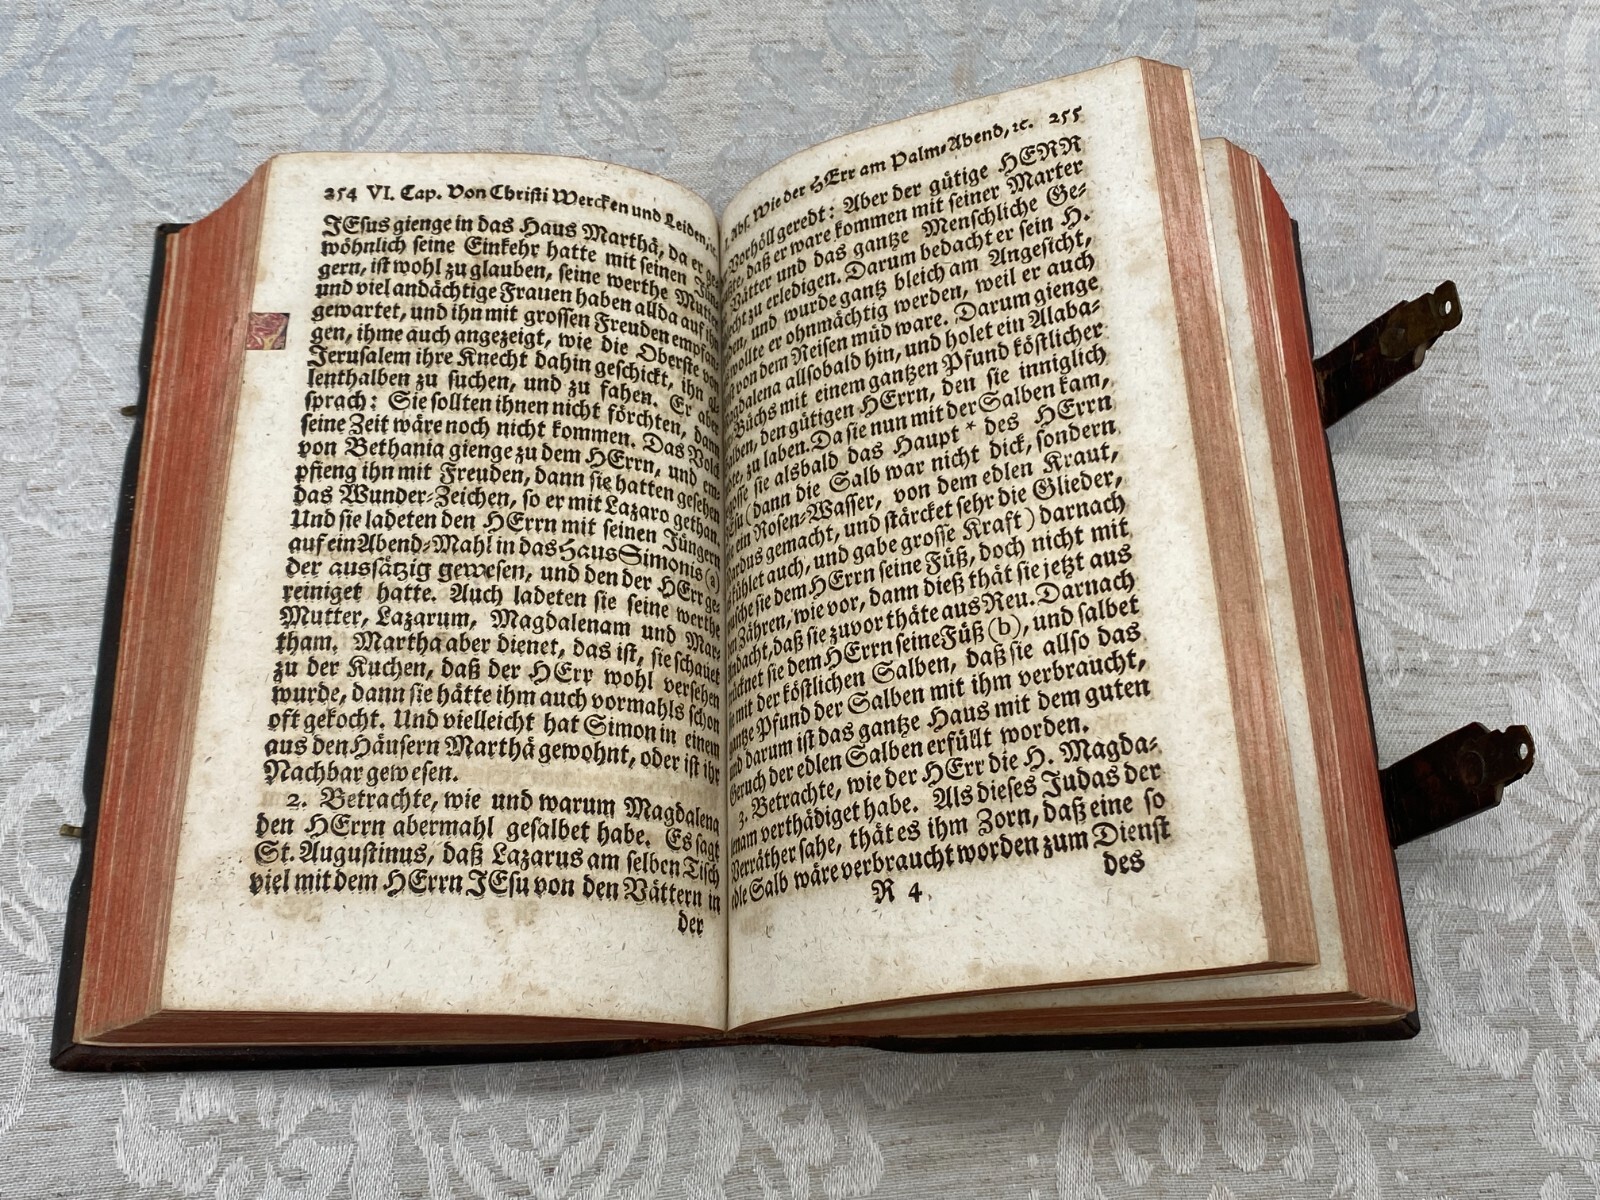 254 VI. Cap. Von Christi Wercken und Leiden,
JEsus gienge in das Haus Marthä, da er ge-
wöhnlich seine Einkehr hatte mit seinen Jün-
gern, ist wohl zu glauben, seine werthe Mutter
und viel andächtige Frauen haben allda auf ihn
gewartet, und ihn mit grossen Freuden empfan-
gen, ihme auch angezeigt, wie die Oberste von
Jerusalem ihre Knecht dahin geschickt, ihn al-
lenthalben zu suchen, und zu fahen. Er aber
sprach: Sie sollten ihnen nicht förchten, dann
seine Zeit wäre noch nicht kommen. Das Volck
von Bethania gienge zu dem HErrn, und em-
pfieng ihn mit Freuden, dann sie hatten gesehen
das Wunder-Zeichen, so er mit Lazaro gethan.
Und sie ladeten den HErrn mit seinen Jüngern
auf ein Abend-Mahl in das Haus Simonis (a)
der aussätzig gewesen, und den der HErr ge-
reiniget hatte. Auch ladeten sie seine werthe
Mutter, Lazarum, Magdalenam und Mar-
tham. Martha aber dienet, das ist, sie schauet
zu der Kuchen, daß der HErr wohl versehen
wurde, dann sie hätte ihm auch vormahls schon
oft gekocht. Und vielleicht hat Simon in einem
aus den Häusern Marthä gewohnt, oder ist ihr
Nachbar gewesen.
2. Betrachte, wie und warum Magdalena
den HErrn abermahl gesalbet habe. Es sagt
St. Augustinus, daß Lazarus am selben Tisch
viel mit dem HErrn JEsu von den Vättern in
der
Abs. Wie der HErr am Palm-Abend, ꝛc. 255
Vorhöll geredt: Aber der gütige HERR
daß er ware kommen mit seiner Marter
Vätter und das gantze Menschliche Ge-
zu erledigen. Darum bedacht er sein H.
und wurde gantz bleich am Angesicht,
wollte er ohnmächtig werden, weil er auch
von dem Reisen müd ware. Darum gienge
allsobald hin, und holet ein Alaba-
Büchs mit einem gantzen Pfund köstlicher
den gütigen HErrn, den sie inniglich
zu laben. Da sie nun mit der Salben kam,
sie alsbald das Haupt * des HErrn
(dann die Salb war nicht dick, sondern
ein Rosen-Wasser, von dem edlen Kraut,
gemacht, und stärcket sehr die Glieder,
auch, und gabe grosse Kraft) darnach
sie dem HErrn seine Füß, doch nicht mit
Zähren, wie vor, dann dieß thät sie jetzt aus
daß sie zuvor thäte aus Reu. Darnach
sie dem HErrn seine Füß (b), und salbet
mit der köstlichen Salben, daß sie allso das
Pfund der Salben mit ihm verbraucht,
und darum ist das gantze Haus mit dem guten
Geruch der edlen Salben erfüllt worden.
3. Betrachte, wie der HErr die H. Magda-
lenam verthädiget habe. Als dieses Judas der
Verräther sahe, thät es ihm Zorn, daß eine so
edle Salb wäre verbraucht worden zum Dienst
R 4 des